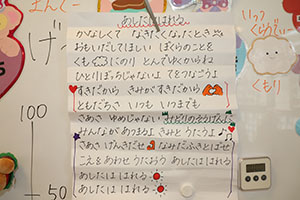 あしたははれる
かなしくて なきたくなったとき
おもいだしてほしい ぼくらのことを
くも にのり とんでゆくからね
ひとりぼっちじゃないよ てをつなごうよ
すきだから きみがすきだから
ともだちさ いつも いつまでも
さあさ ゆめじゃない みどりのそうげん
みんながあつまるよ きみとうたうよ
さあさ げんきだせ なみだふきとばせ
こえをあわせ うたおう あしたははれる
あしたははれる
あしたははれる
まんぐー
げ
100
50
いっ
くらう
くもり